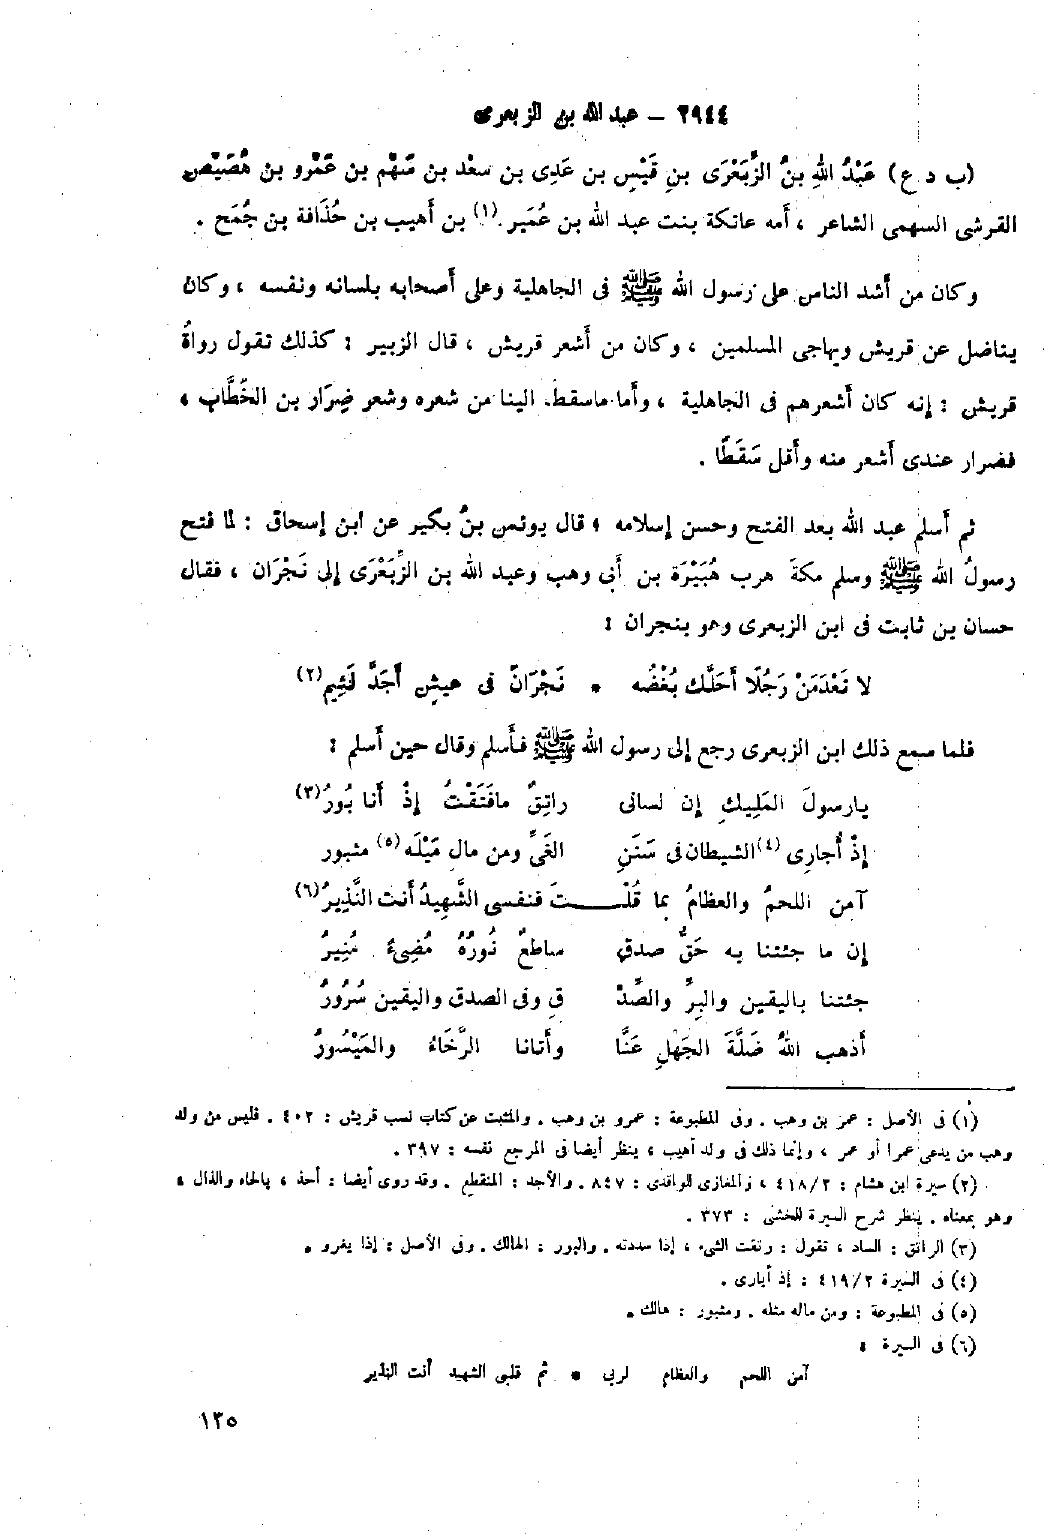 ٢٩٤٤ – عبد الله بن الزبعرى
(ب د ع) عَبْدُ اللهِ بنُ الزِّبَعْرَى بنِ قَيْسِ بن عَدِى بن سعْد بن سَهْم بن عَمْرو بن هُصَيْص
القرشى السهمى الشاعر ، أمه عاتكة بنت عبد الله بن عُمَير (١) بن أهيب بن حُذَافة بن جُمَح .
وكان من أشد الناس على رسول الله ﷺ فى الجاهلية وعلى أصحابه بلسانه ونفسه ، وكان
يناضل عن قريش ويهاجى المسلمين ، وكان من أشعر قريش ، قال الزبير : كذلك تقول رواةُ
قريش : إنه كان أشعرهم فى الجاهلية ، وأما ماسقط إلينا من شعره وشعر ضِرَار بن الخَطَّاب ،
فضرار عندى أشعر منه وأقل سَقَطًا .
ثم أسلم عبد الله بعد الفتح وحسن إسلامه ، قال يونس بنُ بكير عن ابن إسحاق : لما فتح
رسولُ الله ﷺ وسلم مكةَ هرب هُبَيْرَة بن أبى وهب وعبد الله بن الزِّبَعْرَى إلى نَجْرَان ، فقال
حسان بن ثابت فى ابن الزبعرى وهو بنجران :
لا تَعْدَمَنْ رَجُلًا أَحَلَّك بُغْضُه * نَجْرَانَ فى عيشٍ أَجَدَّ لَئِيم (٢)
فلما سمع ذلك ابن الزبعرى رجع إلى رسول الله ﷺ فأسلم وقال حين أسلم :
يارسولَ المَلِيكِ إن لسانى راتِقٌ مافَتَقْتُ إذْ أنا بُورُ (٣)
إذْ أُجارِى (٤) الشيطان فى سَنَنِ الغَىِّ ومن مال مَيْلَه (٥) مثبور
آمن اللحمُ والعظامُ بما قُلْـــتَ فنفسى الشَّهِيدُ أنت النَّذِيرُ (٦)
إن ما جئتنا به حَقُّ صدقٍ ساطعٌ نُورُهُ مُضِىءٌ مُنِيرُ
جئتنا باليقين والبِرِّ والصِّدْ قِ وفى الصدق واليقين سُرُورُ
أذهب اللهُ ضَلَّةَ الجَهْلِ عَنَّا وأتانا الرَّخَاءُ والمَيْسُورُ
(١) فى الأصل : عمر بن وهب . وفى المطبوعة : عمرو بن وهب . والمثبت عن كتاب نسب قريش : ٤٠٢ . فليس من ولد
وهب من يدعى عمرا أو عمر ، وإنما ذلك فى ولد أهيب ، ينظر أيضا فى المرجع نفسه : ٣٩٧ .
(٢) سيرة ابن هشام : ٤١٨/٢ ، والمغازى للواقدى : ٨٤٧ . والأجد : المنقطع . وقد روى أيضا : أحذ ، بالحاء والذال ،
وهو بمعناه . ينظر شرح السيرة للخشنى : ٣٧٣ .
(٣) الراتق : الساد ، تقول : رتقت الشىء ، إذا سددته . والبور : الهالك . وفى الأصل : إذا يغرو .
(٤) فى السيرة ٤١٩/٢ : إذ أبارى .
(٥) فى المطبوعة : ومن ماله مثله . ومثبور : هالك .
(٦) فى السيرة :
آمن اللحم والعظام لربى * ثم قلبى الشهيد أنت النذير
١٣٥